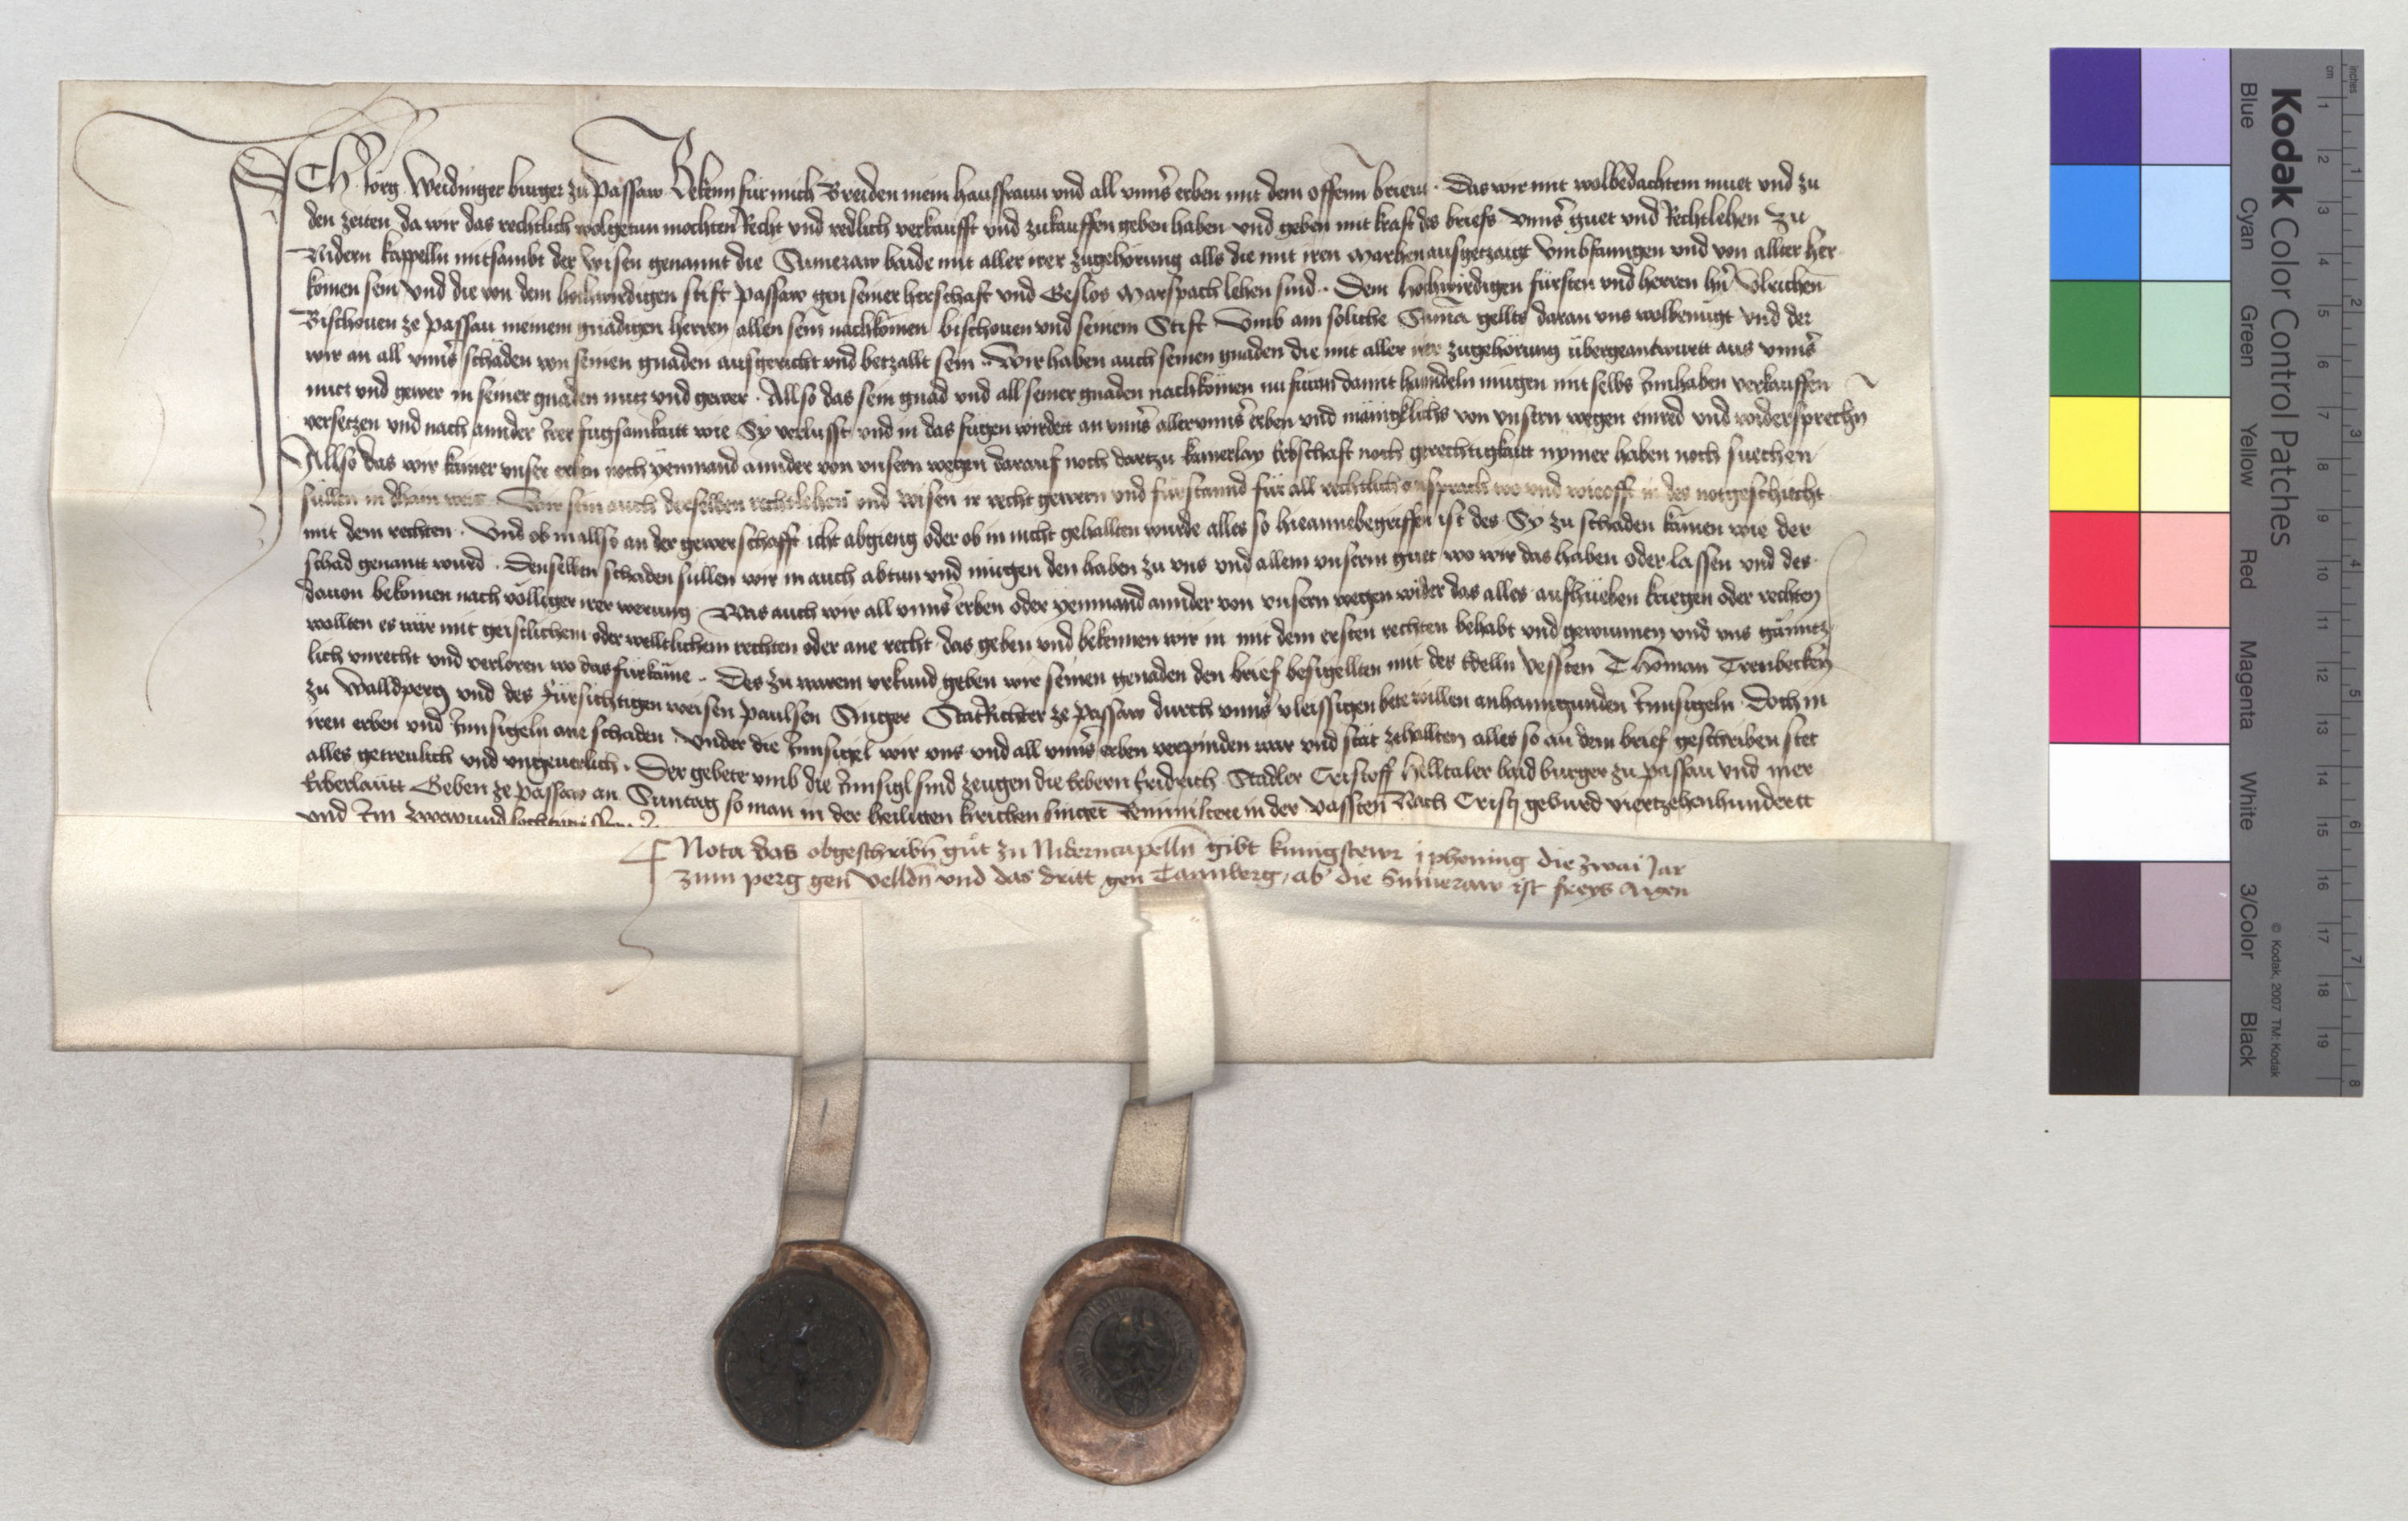 ICH Jorg Weidinger burger zu Passaw Bekenn für mich Breiden mein hausfraun und all unns̄ erben mit dem offenn brieue · Das wir mit wolbedachtem muet und zu
den zeiten da wir das rechtlich wolgetun mochten Recht und redlich verkaufft und zukauffen geben haben und geben mit kraft des briefs unns̄ guet und Rechtlehen zu
Nidern kappelln mitsambt der wisen genannt die Sumeraw baide mit aller irer zugehorung alls die mit iren Marhen ausgetzaigt umbfanngen und von allter her
komen sein und die von dem hochwirdigen stift Passaw gen seiner herschaft und Geslos Marspach lehen sind · Dem hochwirdigen fürsten und herren hn̄ Ulrichen
Bischouen ze Passau meinem gnädigen herren allen sein̄ nachkōmen bischouen und seinem Stift Umb ain soliche Sum̄a gellts daran uns wolbenügt und der
wir an all unns̄ schäden von seinen gnaden ausgericht und betzallt sein · Wir haben auch seinen gnaden die mit aller irer zugehörung übergeantwurtt aus unns̄
nutz und gewer in seiner gnaden nutz und gewer · Allso das sein gnad und all seiner gnaden nachkōmen nu füran damit hanndeln mügen mit selbs Innhaben verkauffen
versetzen und nach annder Irer fugsamkaitt wie Sy verlusst und in das fügen wirdett an unns̄ aller unns̄ erben und mänigklichs von unsern wegen einred und widersprechn̄
Allso das wir kainer unser erben noch yemmand annder von unsern wegen darauf noch dartzu kainerlay Erbschaft noch gerechtigkaitt nymer haben noch suechen
süllen in dhain weis · Wir sein auch derselben rechtlehen und wisen ir recht gewern und fürstannd für all rechtlich ansprach wo und wieofft in des notgeschiecht
mit dem rechten · Und ob in allso an der gewerschafft icht abgieng oder ob in nicht gehallten wurde alles so hieannebegriffen ist des Sy zu schaden kämen wie der
schad genantt wurd · Denselben schaden süllen wir in auch abtun und mügen den haben zu uns und allem unserm guet wo wir das haben oder lassen und des
dauon bekōmen nach völliger irer werung · Was auch wir all unns̄ erben oder yemmand annder von unsern wegen wider das alles aufhüeben kriegen oder rechten
wollten es wär mit geistlichem oder welltlichem rechten oder ane recht das geben und bekennen wir in mit dem ersten rechten behabt und gewunnen und uns gänntz
lich unrecht und verloren wo das fürkäme · Des zu warem urkund geben wir seinen genaden den brief besigellten mit des Edelln vessten Thoman Trenbecken
zu Walldperg und des Fürsichtigen weisen Paulsen Singer StatRichter ze Passaw durch unns̄ vleissigen bete willen anhanngunden Innsigeln Doch in
iren erben und Innsigeln ane schaden · Under die Innsigel wir uns und all unns̄ erben verpinden war und stät zehallten alles so an dem brief geschriben stet
alles getreulich und ungeuerlich · Der gebete umb die Innsigl sind zeugen die Erbern Fridreich Stadler Cristoff Helltaler baid burger zu Passau und mer
Erberlautt Geben ze Passaw an Suntag so man in der heiligen kirchen singet Reminiscere in der vassten Nach Cristi geburd viertzehenhundertt
und Im zwaiundsechtzigissten
Nota das obgeschribn̄ gut zu Niderncapelln̄ gibt kunigstewr j phening die zwai Jar
zum perg gen velldn̄ und das dritt gen Tannberg, ab die Sumeraw ist freys aigen
Kodak Color Control Patches
Blue Cyan Green Yellow Red Magenta White 3/Color Black
© Kodak, 2007 TM: Kodak
inches 1 2 3 4 5 6 7 8
cm 1 2 3 4 5 6 7 8 9 10 11 12 13 14 15 16 17 18 19